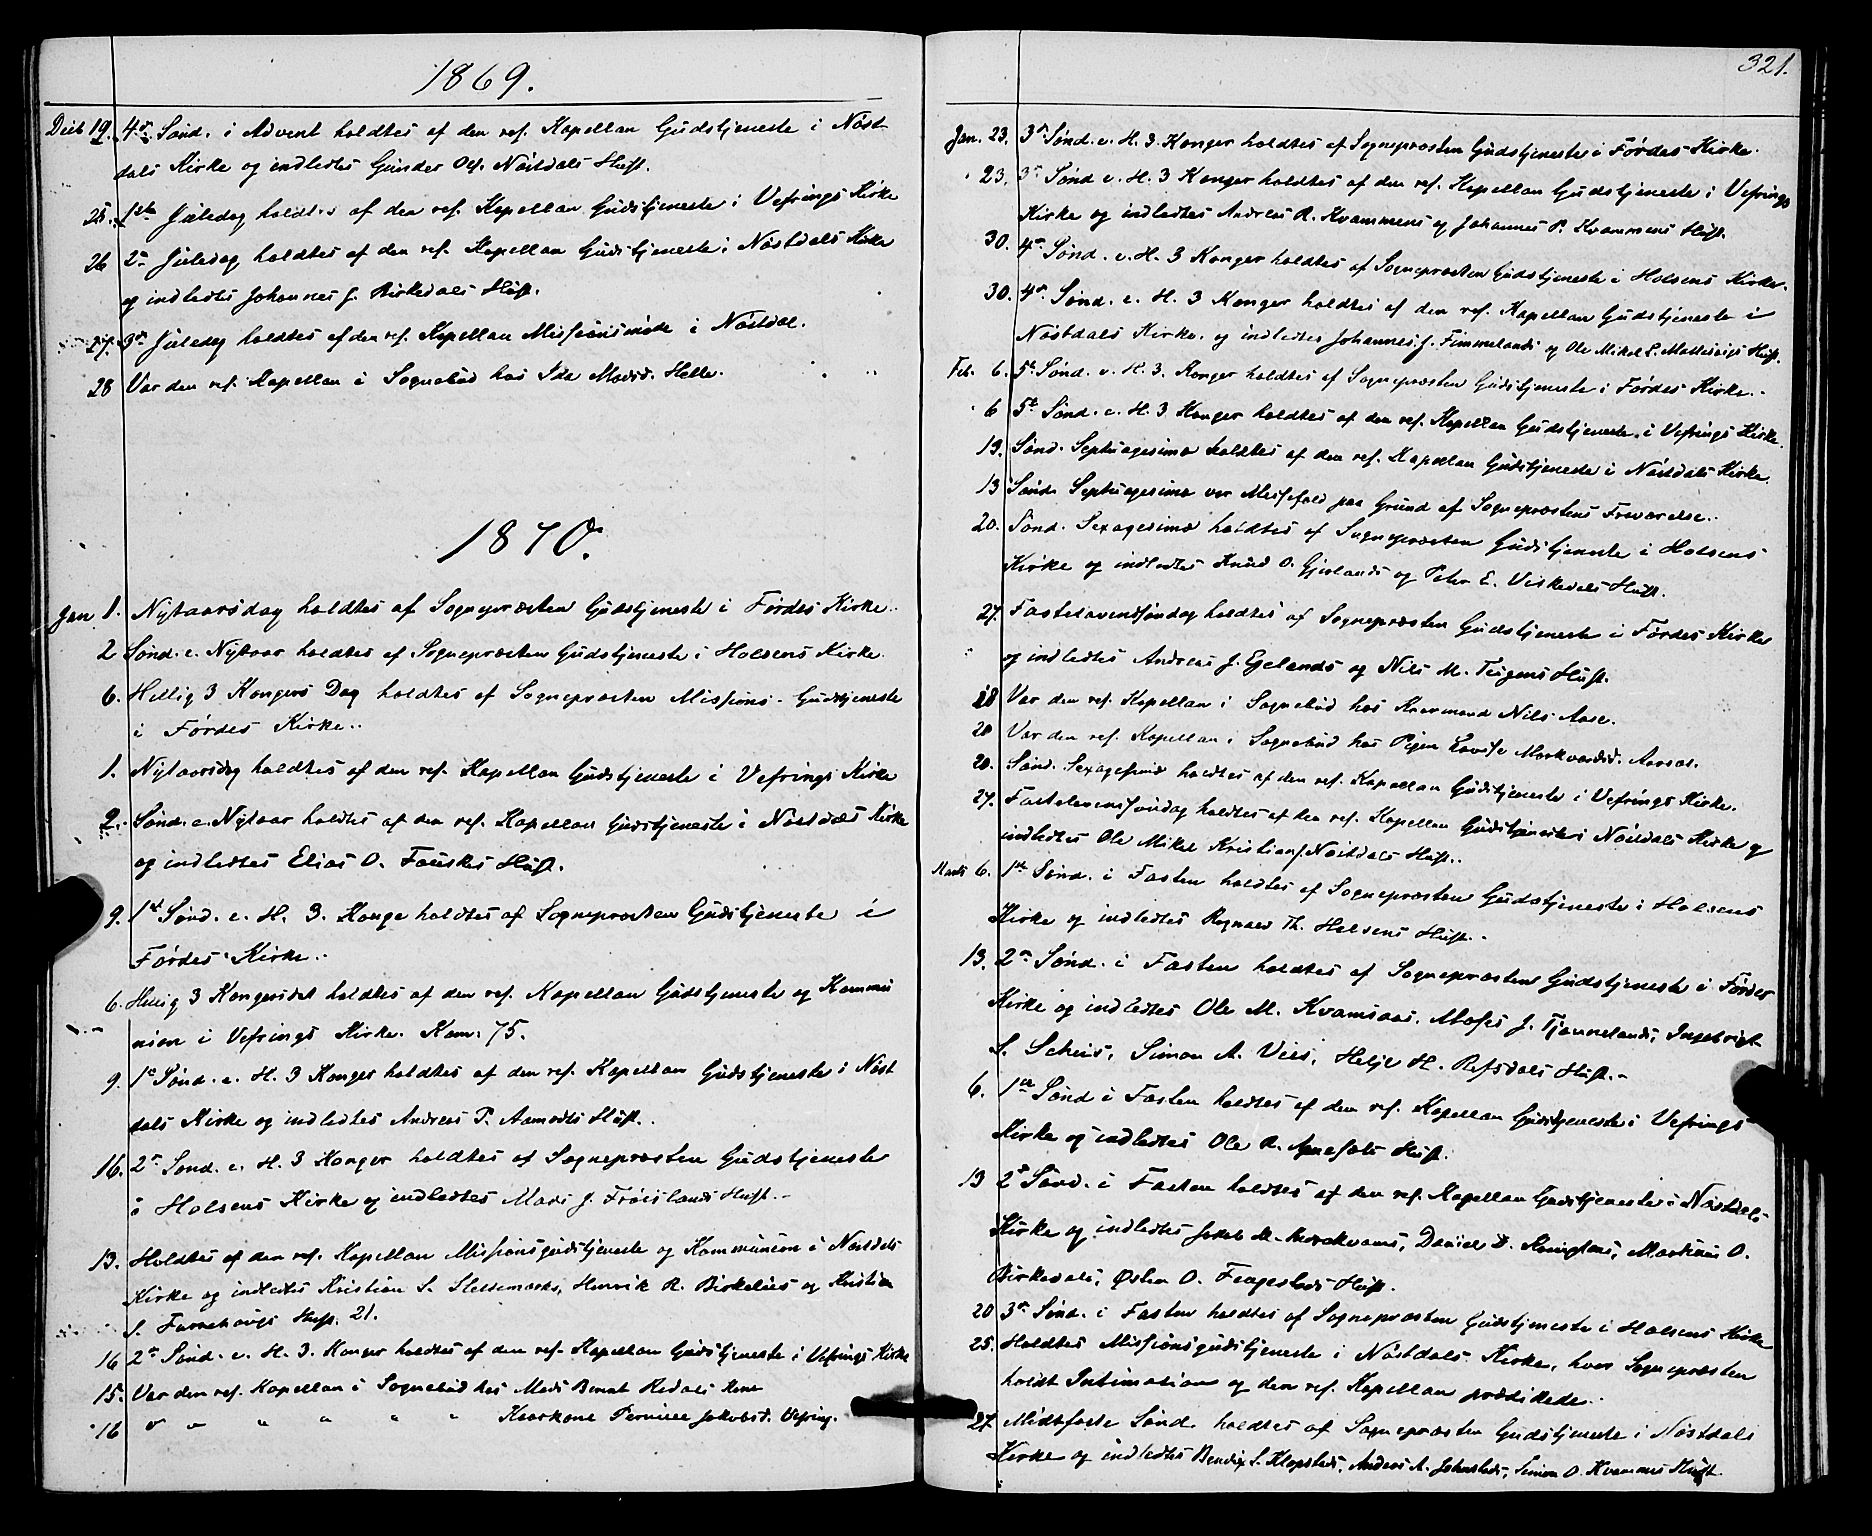 1869.
Decb 19. 4de Sønd. i Advent holdtes af den res. Kapellan Gudstjeneste i Nøst
dals Kirke og indledtes Gunder Ols. Nøstdals Hust.
25. 1ste Juledag holdtes af den res. Kapellan Gudstjeneste i Vefrings Kirke
26 2n Juledag holdtes af den res. Kapellan Gudstjeneste i Nøstdals Kirke
og indledtes Johannes J. Birkedals Hust.
27. 3n Juledag holdtes af den res. Kapellan Missionsmøde i Nøstdal.
28 Var den res. Kapellan i Sognebud hos Ida Madsd. Helle.
1870.
Jan 1. Nytaarsdag holdtes af Sognepræsten Gudstjeneste i Førdes Kirke.
2 Sønd. e. Nytaar holdtes af Sognepræsten Gudstjeneste i Holsens Kirke.
6. Hellig 3 Kongers Dag holdtes af Sognepræsten Missions-Gudstjeneste
i Førdes Kirke.
1. Nytaarsdag holdtes af den res. Kapellan Gudstjeneste i Vefrings Kirke
2. Sønd. e. Nytaar holdtes af den res. Kapellan Gudstjeneste i Nøstdals Kirke
og indledtes Elias O. Fauskes Hust.
9. 1st Sønd. e. H. 3. Konge holdtes af Sognepræsten Gudstjeneste i
Førdes Kirke.
6. Hellig 3 Kongers holdtes af den res. Kapellan Gudstjeneste og Kommu
nion i Vefrings Kirke. Kom. 75.
9. 1e Sønd. e. H. 3 Konger holdtes af den res. Kapellan Gudstjeneste i Nøst
dals Kirke og indledtes Andreas P. Aamodts Hust.
16. 2n Sønd. e. H. 3 Konger holdtes af Sognepræsten Gudstjeneste
i Holsens Kirke og indledtes Mads J. Frøislands Hust.
13. Holdtes af den res. Kapellan Missionsgudstjeneste og Kommunion i Nøstdals
Kirke og indledtes Kristian S. Slettemarks, Henrik R. Birkelies og Kristian
S. Hust. 21.
16 2n Sønd. e. H. 3. Konger holdtes af den res. Kapellan Gudstjeneste i Vefrings Kirke
15. Var den res. Kapellan i Sognebud hos Mads Bernt Redals Kone
16 " " " " " " Kaarkone Pernille Jakobsd. Vefring.
321.
Jan. 23. 3n Sønd. e. H. 3. Konger holdtes af Sognepræsten Gudstjeneste i Førdes Kirke.
23. 3n Sønd e. H. 3 Konger holdtes af den res. Kapellan Gudstjeneste i Vefrings
Kirke og indledtes Andreas R. Kvammens og Johannes P. Kvammens Hust.
30. 4n Sønd. e. H. 3 Konger holdtes af Sognepræsten Gudstjeneste i Holsens Kirke.
30. 4n Sønd. e. H. 3 Konger holdtes af den res. Kapellan Gudstjeneste i
Nøstdals Kirke, og indledtes Johannes J. Fimmelands og Ole Mikal Hust.
Feb. 6. 5t Sønd. e. H. 3. Konger holdtes af Sognepræsten Gudstjeneste i Førdes Kirke.
6 5t Sønd. e. H. 3 Konger holdtes af den res. Kapellan Gudstjeneste i Vefrings Kirke.
13. Sønd. Septuagesima holdtes af den res. Kapellan Gudstjeneste i Nøstdals Kirke.
13 Sønd. Septuagesima var Messefald paa Grund af Sognepræstens Fraværelse.
20. Sønd. Sexagesima holdtes af Sognepræsten Gudstjeneste i Holsens
Kirke og indledtes Knud O. Gjerlands og Peter E. Viskedals Hust.
27. Fastelavenssøndag holdtes af Sognepræsten Gudstjeneste i Førdes Kirke
og indledtes Andreas J. Egelands og Nils M. Teigens Hust.
18 Var den res. Kapellan i Sognebud hos Kaarmand Nils Aase.
20 Var den res. Kapellan i Sognebud hos Pigen Lovise Markvardsd.
20. Sønd. Sexagesima holdtes af den res. Kapellan Gudstjeneste i Vefrings Kirke.
27. Fastelavenssøndag holdtes af den res. Kapellan Gudstjeneste i Nøstdals Kirke og
indledtes Ole Mikal Kristians. Nøstdals Hust.
Marts 6. 1st Sønd. i Fasten holdtes af Sognepræsten Gudstjeneste i Holsens
Kirke og indledtes Th. Holsens Hust.
13. 2n Sønd. i Fasten holdtes af Sognepræsten Gudstjeneste i Førdes
Kirke og indledtes Ole M. Kvamsaas, Moses J. Tjønnelands, Ingebrigt
S. Scheis, Simon A. Vies, Helje H. Refsdals Hust.
6. 1ste Sønd i Fasten holdtes af den res. Kapellan Gudstjeneste i Vefrings
Kirke og indledtes Ole R. Hust.
13 2n Sønd. i Fasten holdtes af den res. Kapellan Gudstjeneste i Nøstdals
Kirke og indledtes Jakob M. Daniel Martinus O.
Birkedals, Østen O. Hust.
20 3n Sønd. i Fasten holdtes af Sognepræsten Gudstjeneste i Holsens Kirke
25. Holdtes Missionsgudstjeneste i Nøstdals Kirke, hvor Sognepræsten
holdt Intimation og den res. Kapellan prædikede.
27. Midfaste Sønd. holdtes af Sognepræsten Gudstjeneste i Nøstdals
Kirke og indledtes Bendix S. Klopstads, Anders A. Simon O. Kvammes Hust.